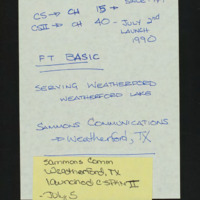 CS → CH 15 →
CSII → CH 40 - JULY 2nd
LAUNCH
1990
FT BASIC
SERVING WEATHERFORD
WEATHERFORD LAKE
SAMMONS COMMUNICATIONS
→ Weatherford, TX
Sammons Comm
Weatherford, TX
launched C-SPAN II
- July 5